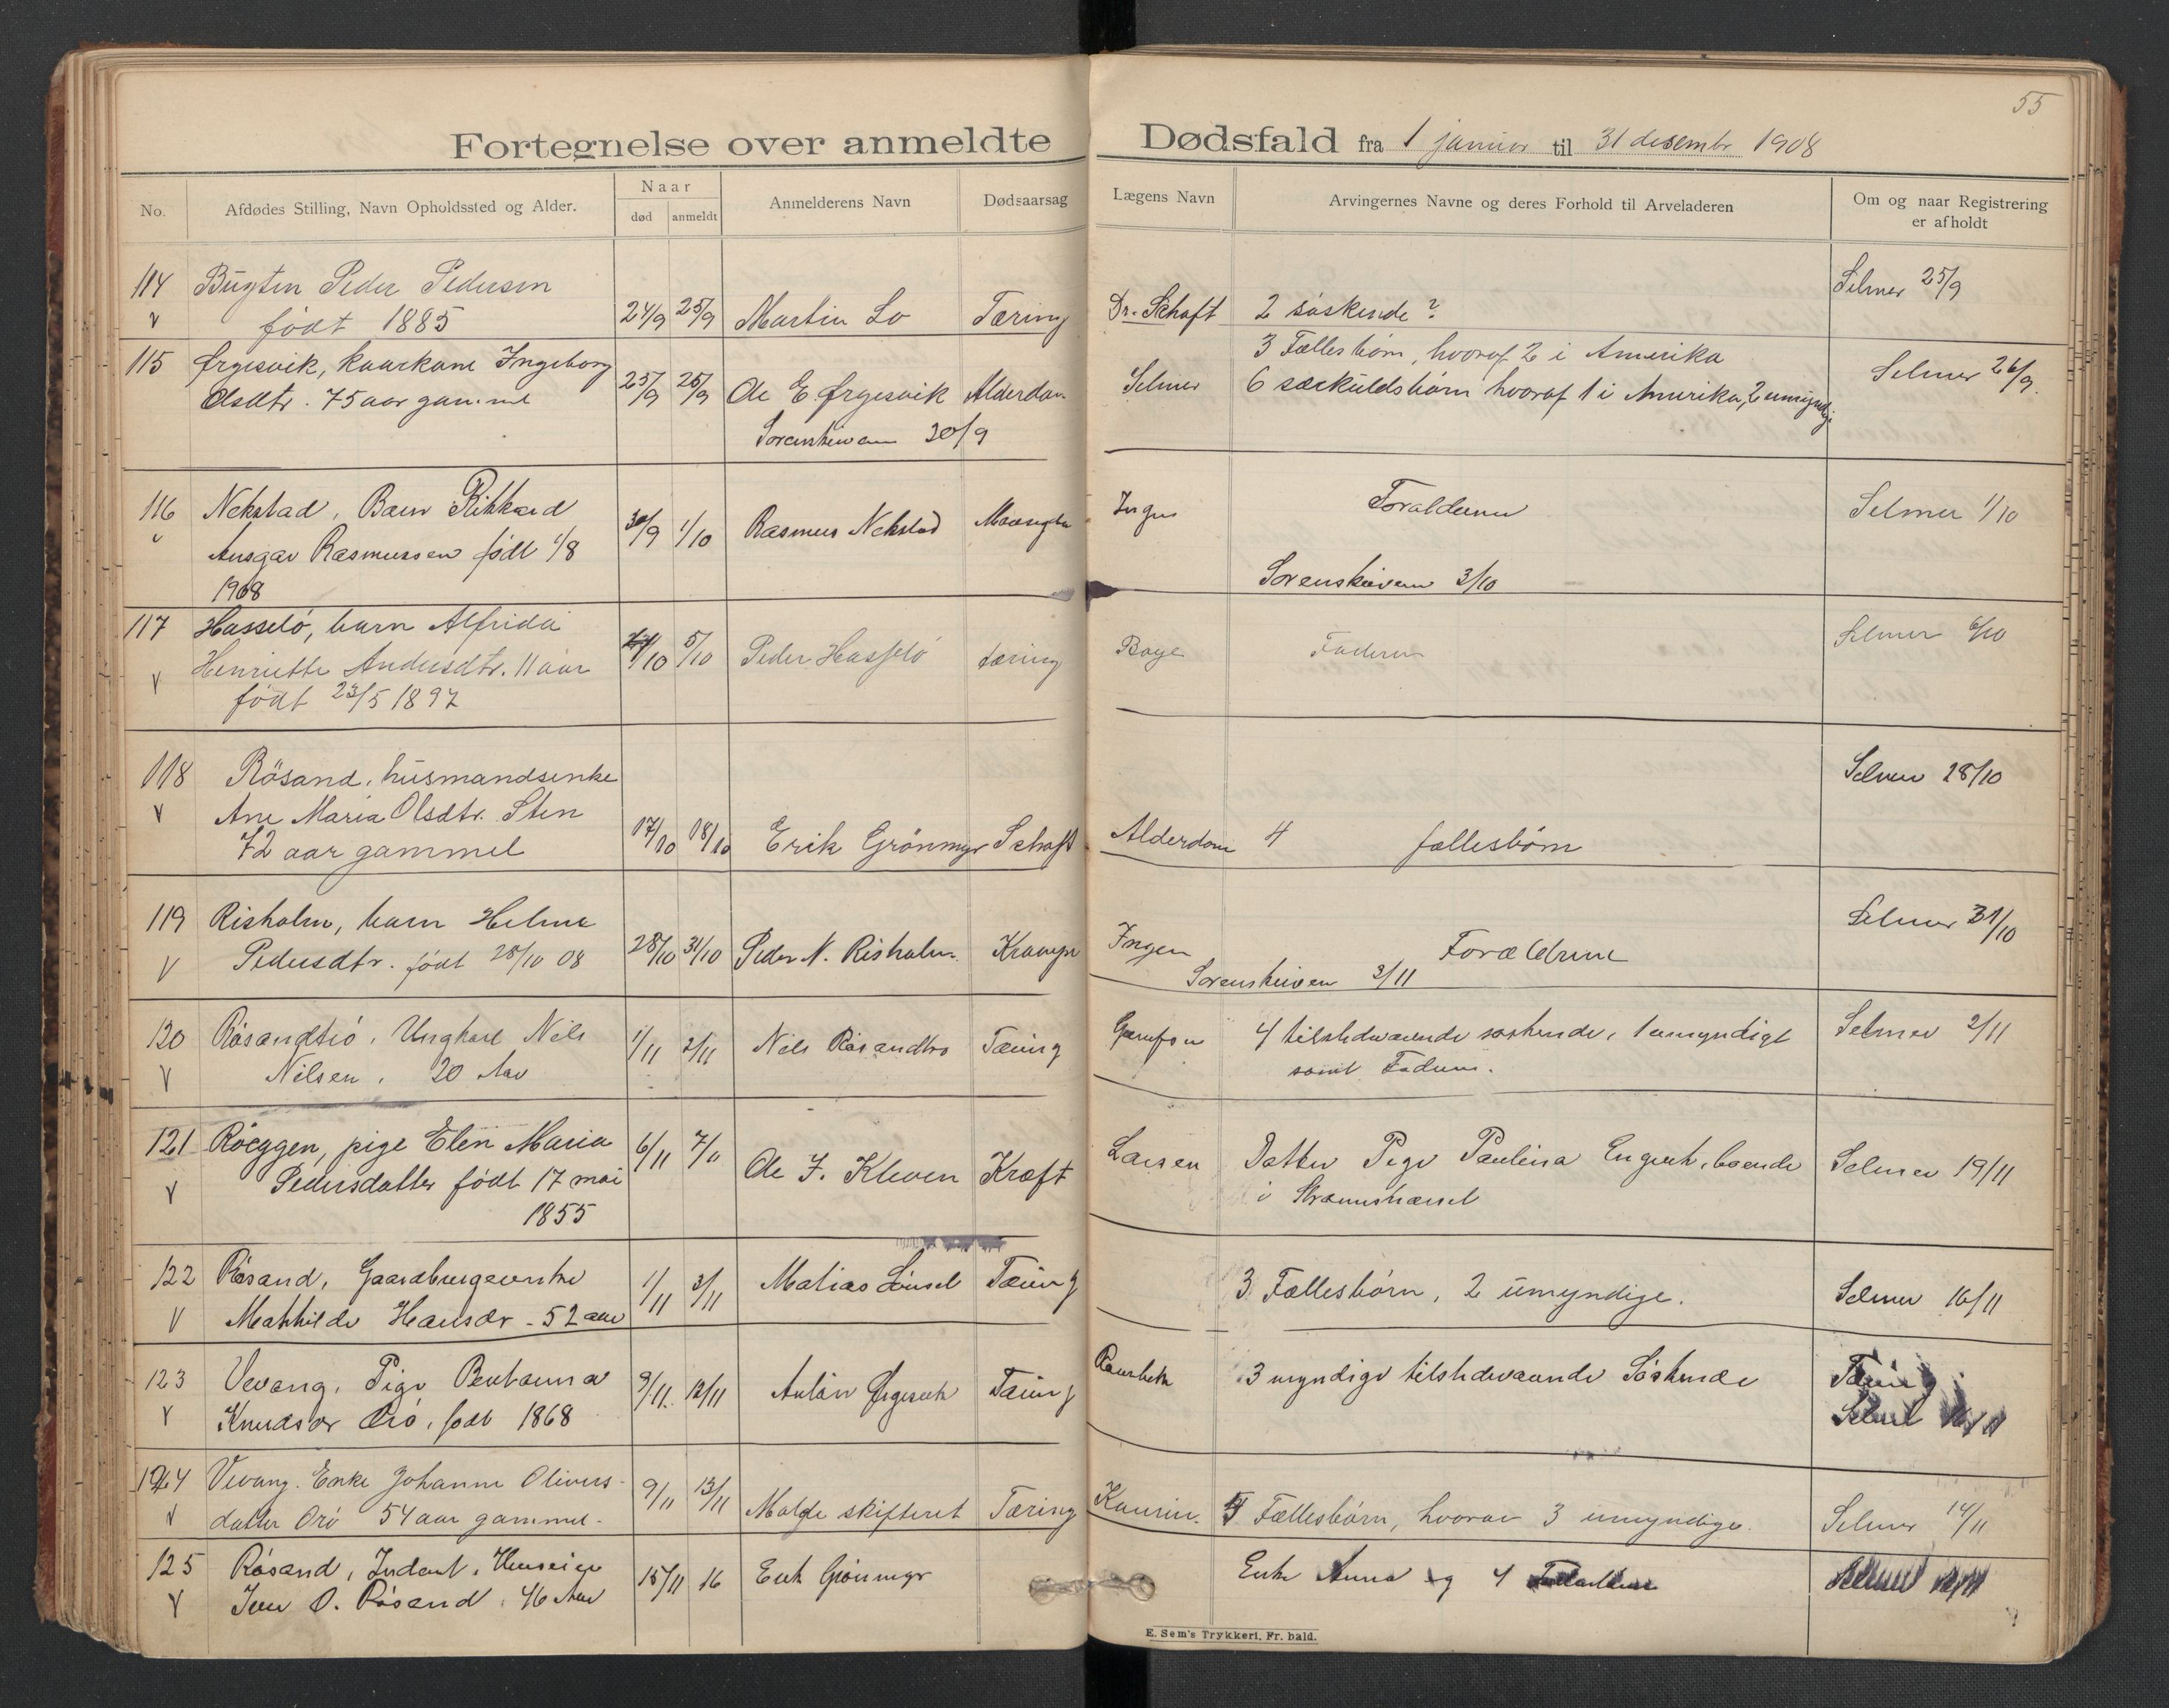 55
Fortegnelse over anmeldte Dødsfald fra 1 januar til 31 desembr 1908
No.
Afdødes Stilling, Navn Opholdssted og Alder.
Naar
død anmeldt
Anmelderens Navn
Dødsaarsag
Lægens Navn
Arvingernes Navne og deres Forhold til Arveladeren
Om og naar Registrering
er afholdt
114 Bugten Peder Pedersen
født 1885
24/9 25/9 Martin Lo Tæring Dr. Schaft 2 søskende ? Selmer 25/9
115 Ørgesvik, kaarkone Ingeborg
Olsdtr. 75 aar gammel
25/9 25/9 Ole E. Ørgesvik Alderdom Selmer
3 Fællesbørn, hvoraf 2 i Amerika
6 særkuldsbørn hvoraf 1 i Amerika, 2 umyndige
Selmer 26/9
Sorenskriveren 30/9
116 Nekstad, Barn Rikkard
Ansgar Rasmussen født 1/8
1908
30/9 1/10 Rasmus Nekstad Ingen Forældrene Selmer 1/10
Sorenskriveren 3/10
117 Hasselø, barn Alfrida
Henriette Andersdtr. 11 aar
født 23/5 1897
4/10 5/10 Peder Hasselø tæring Boye Faderen Selmer 6/10
118 Røsand, husmandsenke
Ane Maria Olsdtr. Sten
72 aar gammel
17/10 18/10 Erik Grønmyr Schaft Alderdom 4 fællesbørn Selmer 28/10
119 Risholm, barn Helme
Pedersdtr. født 28/10 08
28/10 31/10 Peder N. Risholm Krampe Ingen Forældrene Selmer 31/10
Sorenskriveren 3/11
120 Røsandtrø, Ungkarl Nils
Nilsen, 20 Aar
1/11 2/11 Nils Røsandtrø Tæring 4 tilstedeværende søskende, 1 umyndigt
samt Faderen.
Selmer 2/11
121 Røeggen, pige Elen Maria
Pedersdatter født 17 mai
1855
6/11 7/11 Ole J. Kleven Kræft Larsen Datter Pige Paulina Engvik, boende
i
Selmer 19/11
122 Røsand, Gaardbrugerenke
Mathilde Hansdr - 52 aar
1/11 3/11 Matias Lønset Tæring 3 Fællesbørn, 2 umyndige. Selmer 16/11
123 Vevang, Pige
Knudsdr Ørø, født 1868
9/11 12/11 Anton Ørgesvik Tæring 3 myndige tilstedeværende Søskende Tæring
Selmer
124 Vevang. Enke Johanne Olivers-
datter Orø 54 aar gammel.
9/11 13/11 Molde skifteret Tæring Kaurin. Fællesbørn, hvorav 3 umyndige. Selmer 14/11
125 Røsand, Inderst, Huseier
Iver O. Røsand, 46 Aar
15/11 16 Erik Grønmyr Enke Anna og 4
Selmer
E. Sem's Trykkeri, Fr. hald.